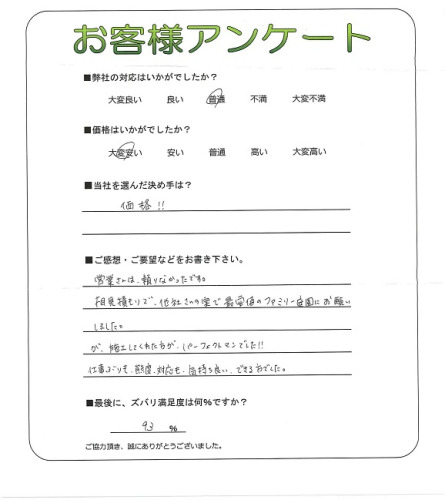 お客様アンケート
■弊社の対応はいかがでしたか？
大変良い 良い 普通 不満 大変不満
■価格はいかがでしたか？
大変安い 安い 普通 高い 大変高い
■当社を選んだ決め手は？
価格!!
■ご感想・ご要望などをお書き下さい。
営業さんは、頼りなかったです。
相見積もりで、他社さんの案で最安値のファミリー庭園にお願い
しました。
が、施工してくれた方が、パーフェクトマンでした!!
仕事ぶりも、態度、対応も、気持ち良い、できる方でした。
■最後に、ズバリ満足度は何%ですか？
93 %
ご協力頂き、誠にありがとうございました。